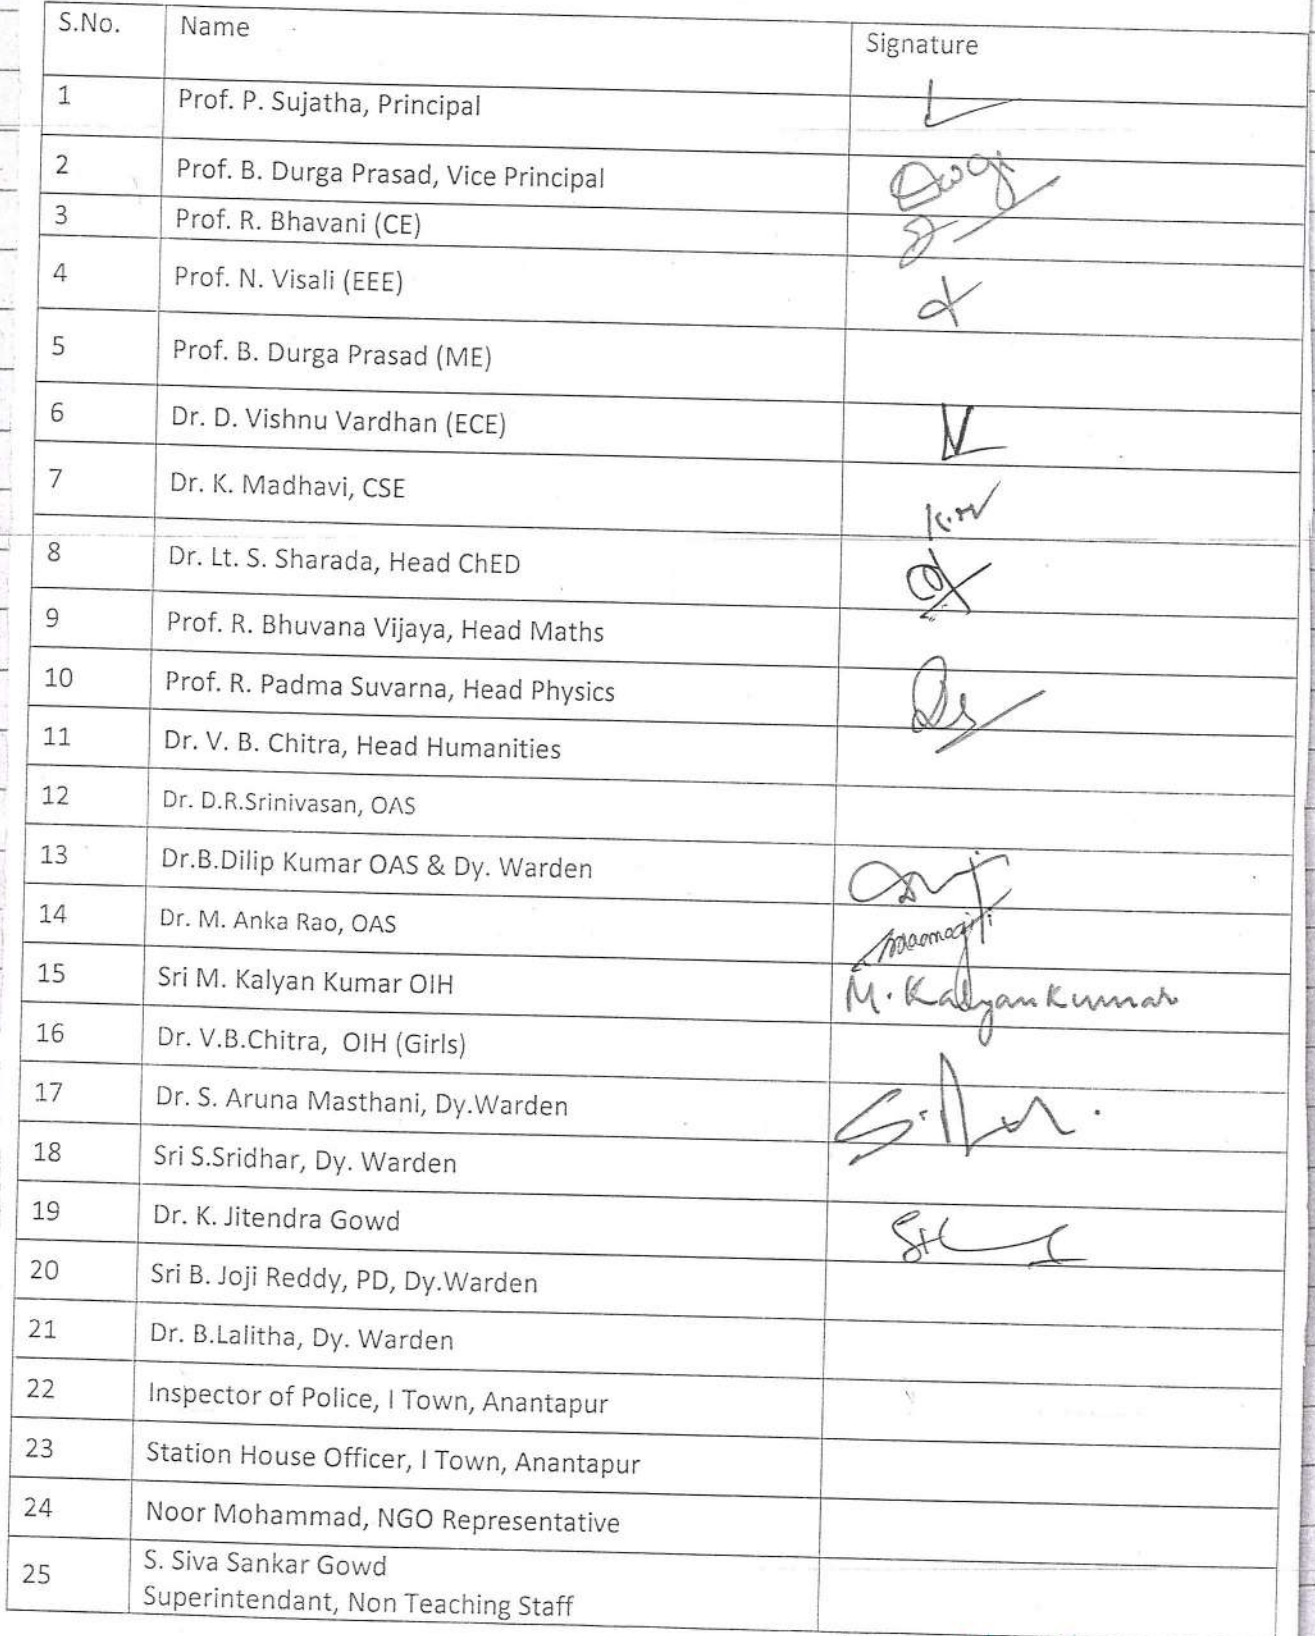 S.No. Name Signature
1 Prof. P. Sujatha, Principal
2 Prof. B. Durga Prasad, Vice Principal
3 Prof. R. Bhavani (CE)
4 Prof. N. Visali (EEE)
5 Prof. B. Durga Prasad (ME)
6 Dr. D. Vishnu Vardhan (ECE)
7 Dr. K. Madhavi, CSE
8 Dr. Lt. S. Sharada, Head ChED
9 Prof. R. Bhuvana Vijaya, Head Maths
10 Prof. R. Padma Suvarna, Head Physics
11 Dr. V. B. Chitra, Head Humanities
12 Dr. D.R.Srinivasan, OAS
13 Dr.B.Dilip Kumar OAS & Dy. Warden
14 Dr. M. Anka Rao, OAS
15 Sri M. Kalyan Kumar OIH M. Kalyan Kumar
16 Dr. V.B.Chitra, OIH (Girls)
17 Dr. S. Aruna Masthani, Dy.Warden
18 Sri S.Sridhar, Dy. Warden
19 Dr. K. Jitendra Gowd
20 Sri B. Joji Reddy, PD, Dy.Warden
21 Dr. B.Lalitha, Dy. Warden
22 Inspector of Police, I Town, Anantapur
23 Station House Officer, I Town, Anantapur
24 Noor Mohammad, NGO Representative
25 S. Siva Sankar Gowd
Superintendant, Non Teaching Staff